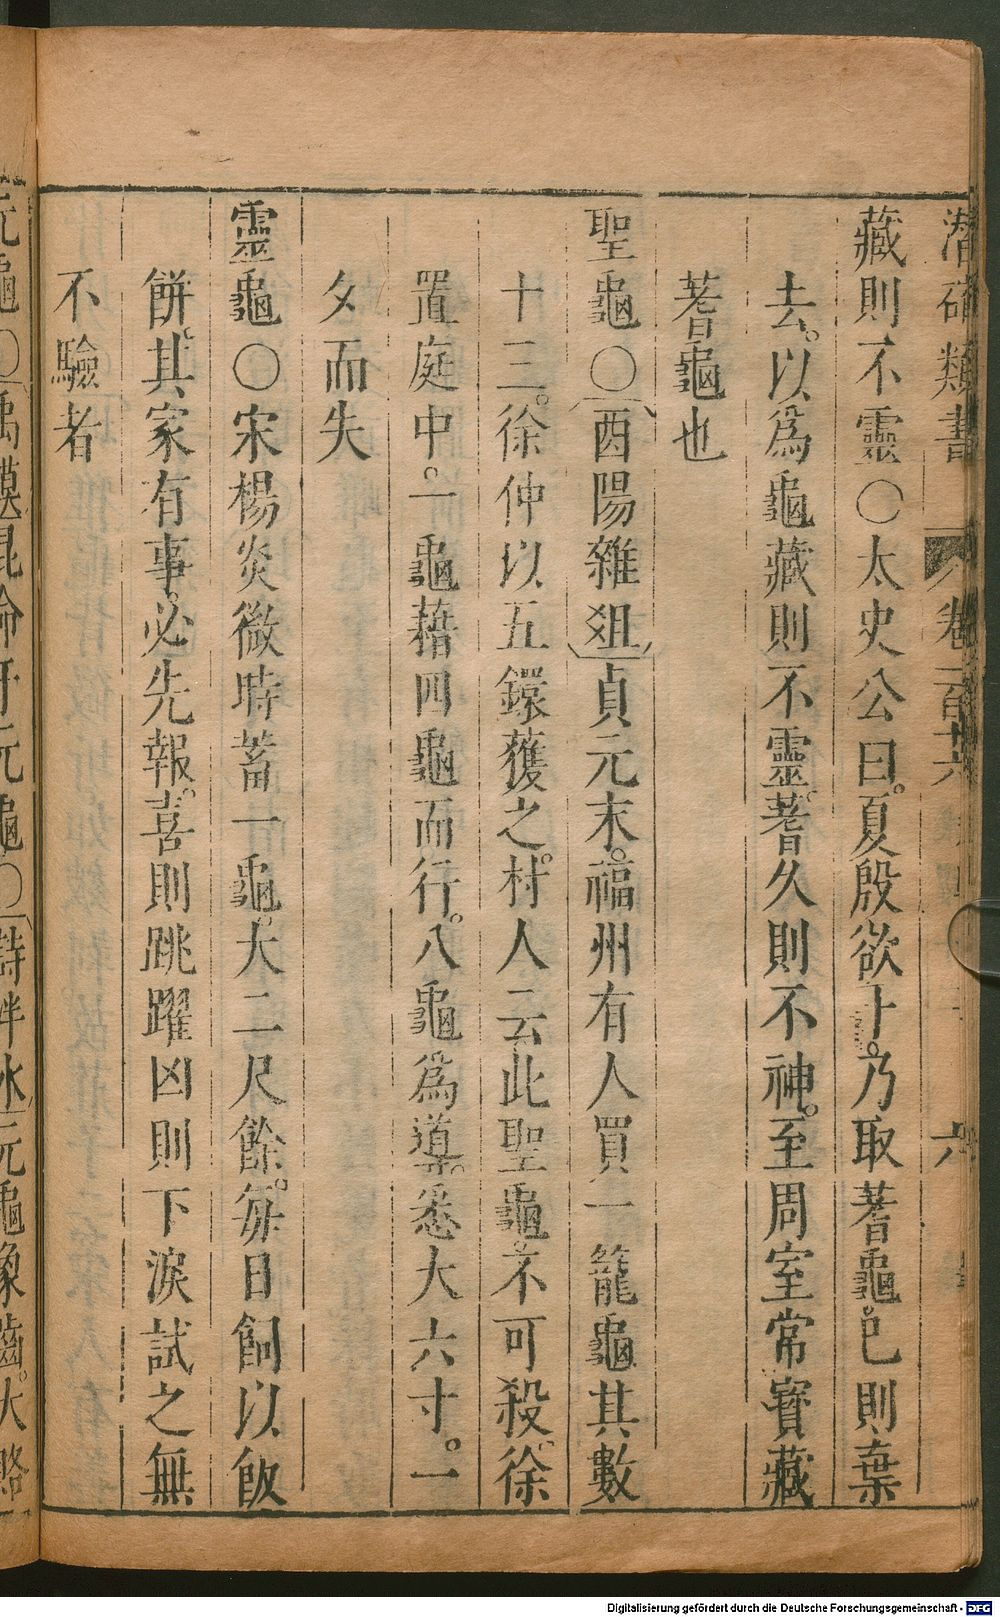 潛確類書 卷一百十六 六
藏則不靈〇太史公曰。夏殷欲卜。乃取蓍龜。已則棄
去。以爲龜藏則不靈。蓍久則不神。至周室常寳藏
蓍龜也
聖龜〇酉陽雜俎貞元末。福州有人買一籠龜其數
十三。徐仲以五鐶獲之。村人云此聖龜。不可殺。徐
置庭中。一龜藉四龜而行。八龜爲導。悉大六寸。一
夕而失
靈龜〇宋楊炎微時蓄一龜。大二尺餘。毎日飼以飯
餅。其家有事。必先報。喜則跳躍凶則下淚試之無
不驗者
元龜〇禹謨昆命于元龜〇詩泮水元龜象齒。大賂
Digitalisierung gefördert durch die Deutsche Forschungsgemeinschaft - DFG